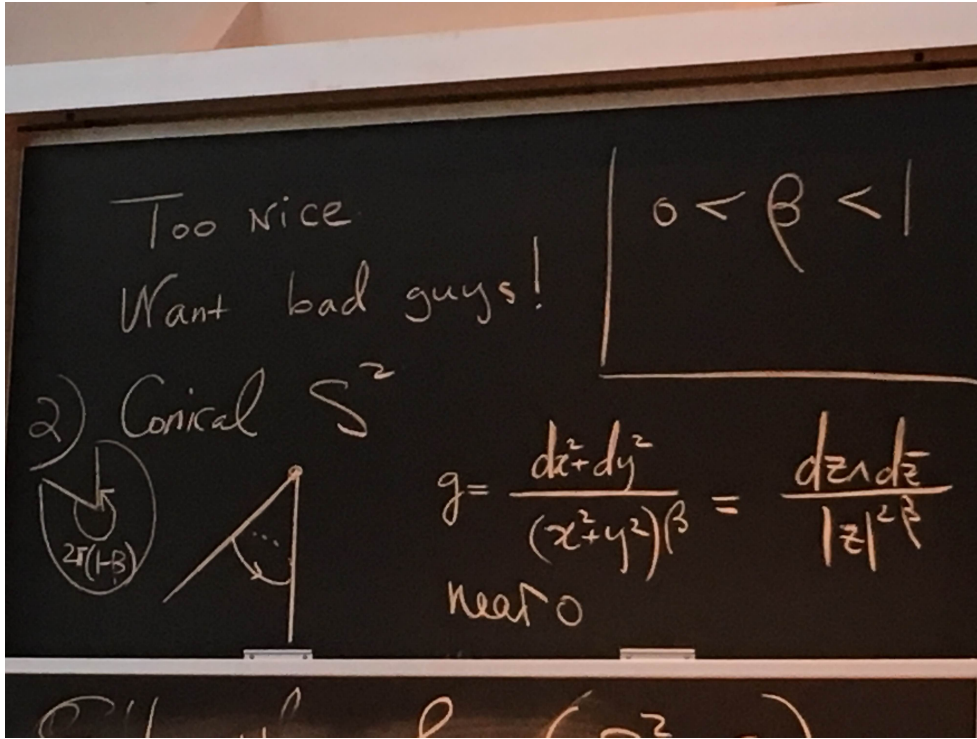 Too Nice
Want bad guys!
0 < β < 1
2) Conical S²
2π(1-β)
g = dx²+dy² / (x²+y²)β = dz∧dz̄ / |z|²β
near 0